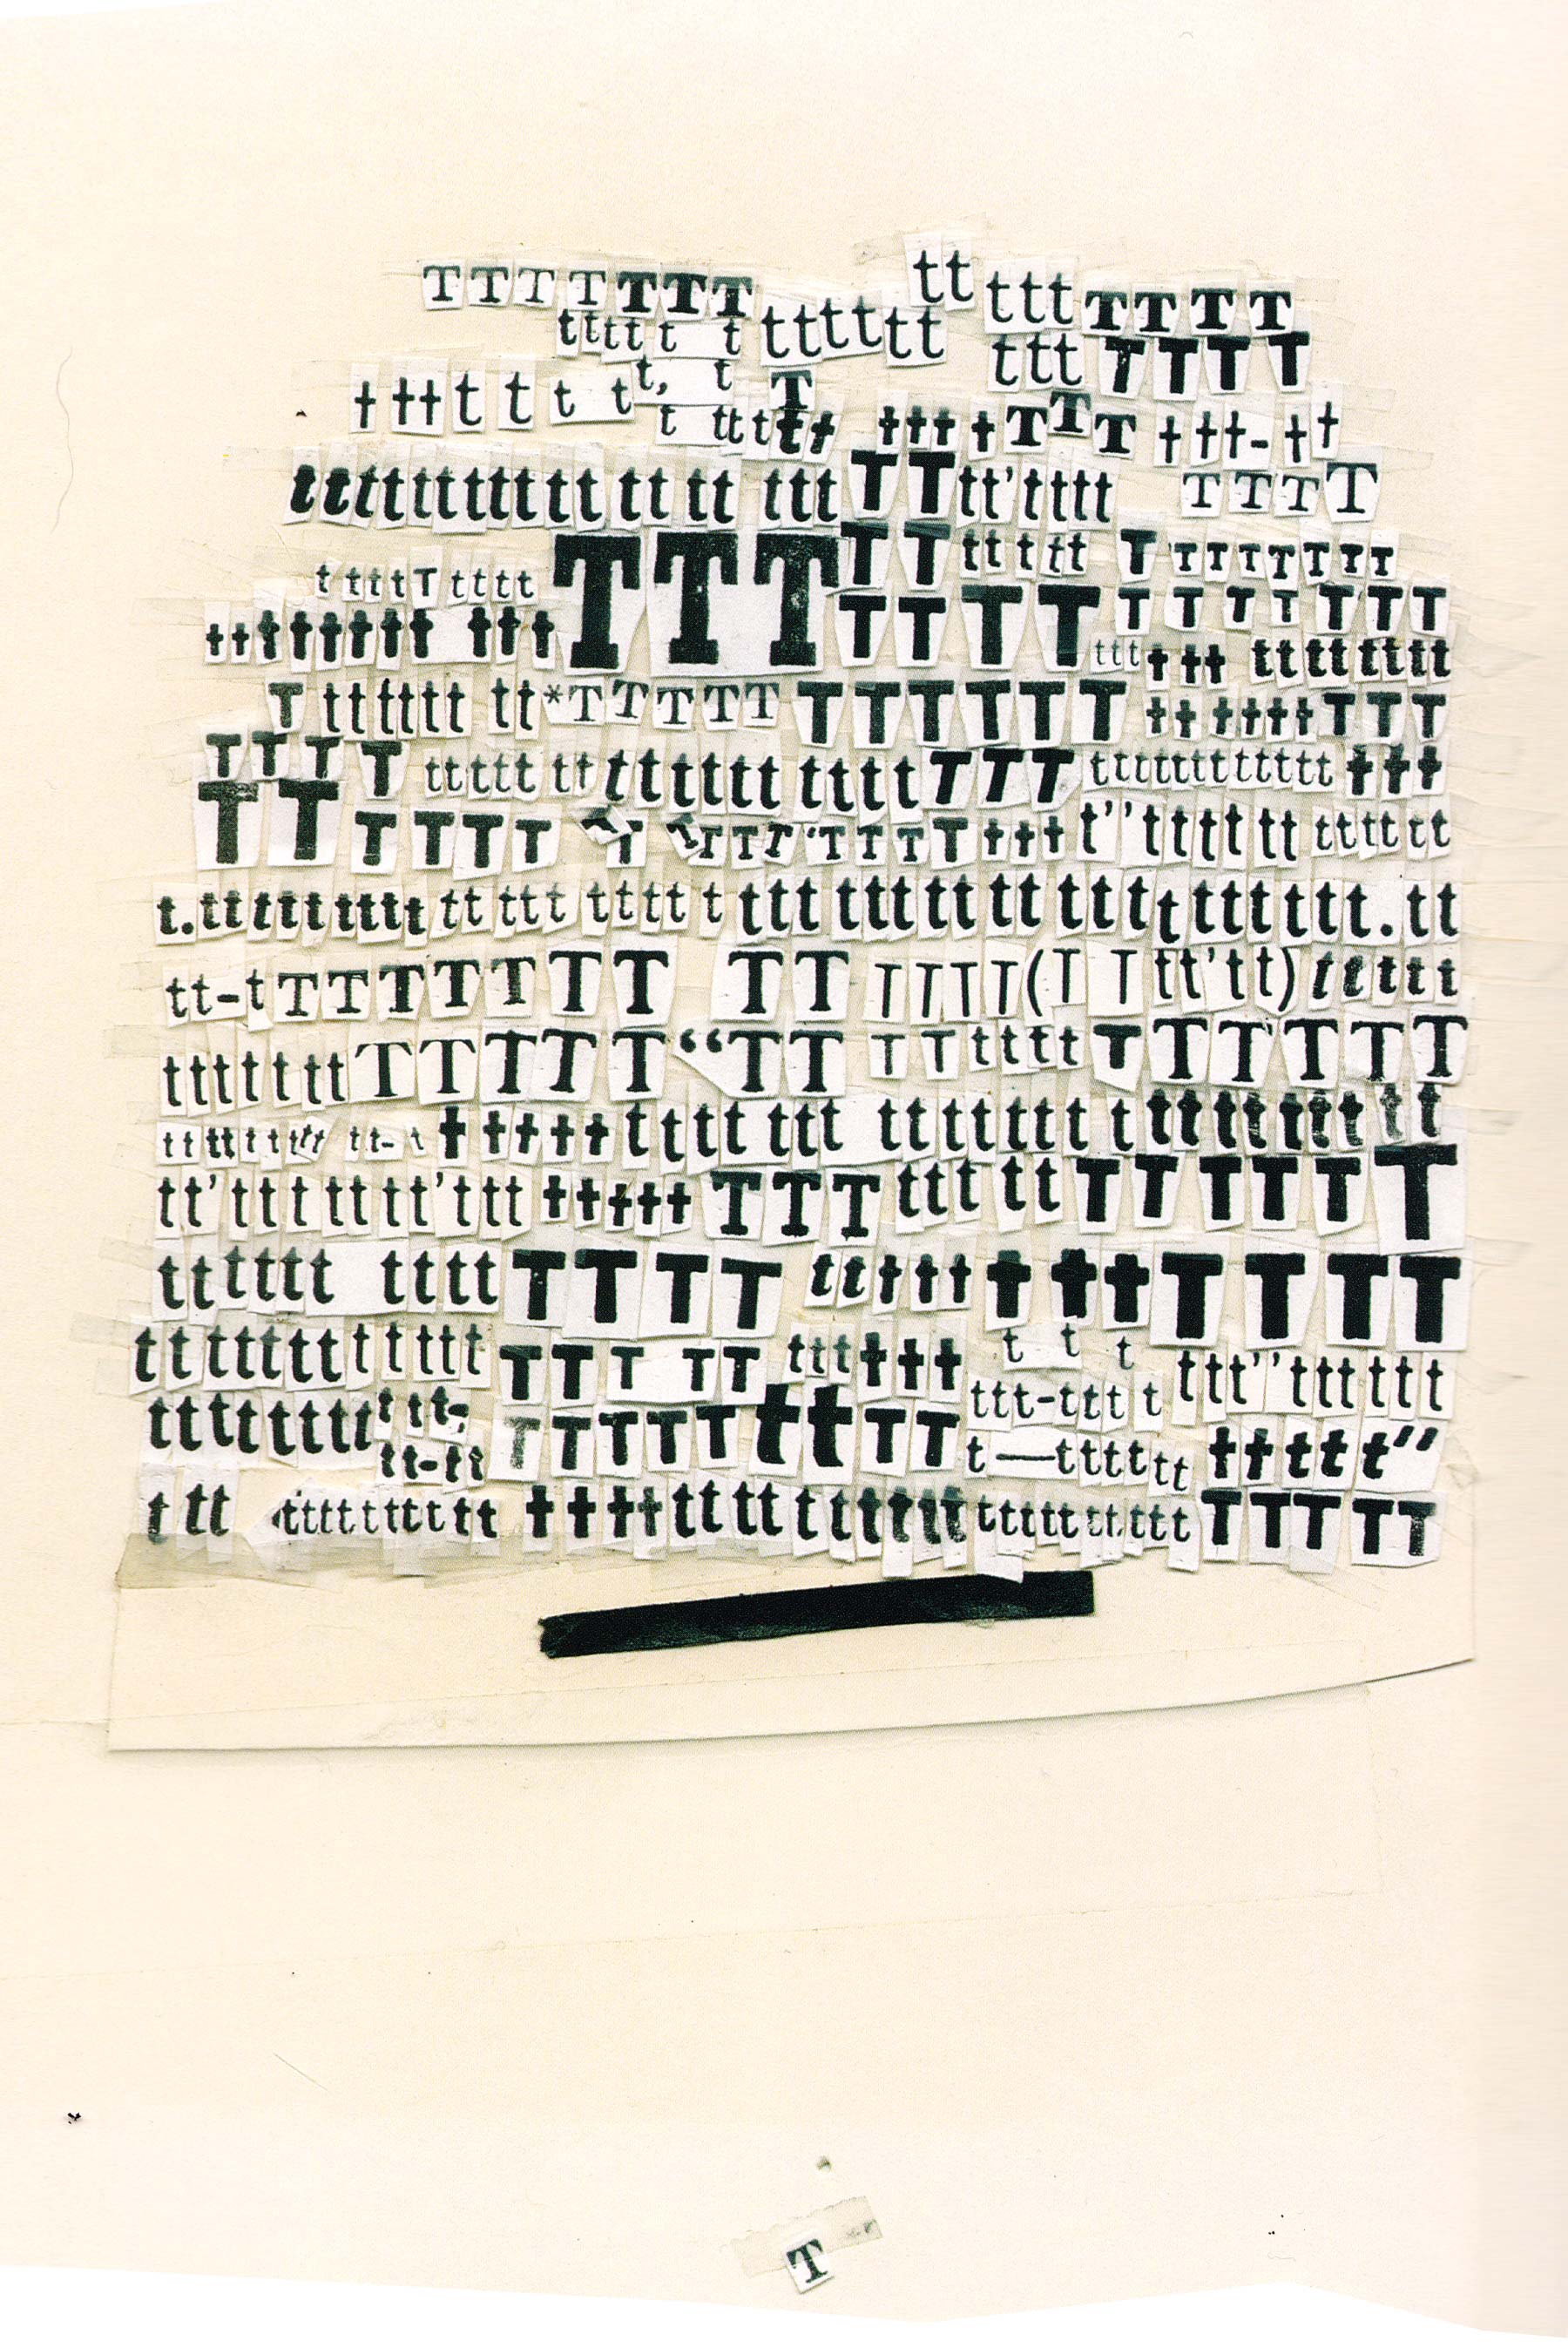 T T T T T T T tt ttt T T T T
ttttt t ttttttt ttt T T T T
t ttt t t t t, t T
t ttttt tttt T T T t tt-tt
ttttttttttttt tt tt ttt T T tt'tttt T T T T
tttt T tttt T T T T T ttttt T T T T T T T T
ttttttttt ttt T T T T T T T T T T T T T
ttt ttt tttttttt
T tttttt tt *T T T T T T T T T T T tttttt T T T
T T T T ttttt tt tttttt tttt T T T ttttttttttt ttt
T T T T T T T T T T T 'T T T T ttt t''tttttt ttttt
t.tttttttttt tt ttt tttt t ttt ttttt tt ttttttt ttt.tt
tt-t T T T T T T T T T T T T T (T T tt'tt) ttttt
ttttttt T T T T T “T T T T tttt T T T T T T
ttttttttt tt-t ttttt tttt ttt ttttttt ttttttttt t
tt'ttt tt tt'ttt ttttt T T T ttt tt T T T T T T
tttttt tttt T T T T ttttt ttt T T T T
ttttttttttttt T T T T T tttttt t t t
ttt-ttt t ttt''tttttt
tttttttttttt- T T T T T tt T T
tt-tt t—ttttttt ttttt''
ttt tttttttttt tttttttttttttttt ttttttttt T T T T T
T